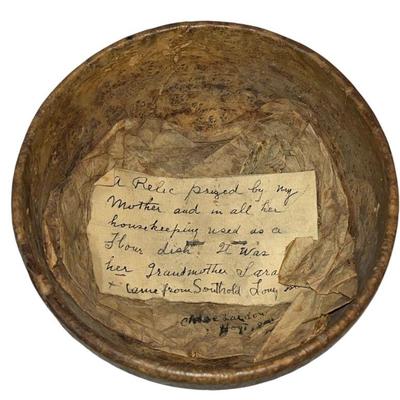 A Relic prized by my
Mother and in all her
housekeeping used as a
Flour dish. It was
her Grandmother Sara
+ came from Southold Long